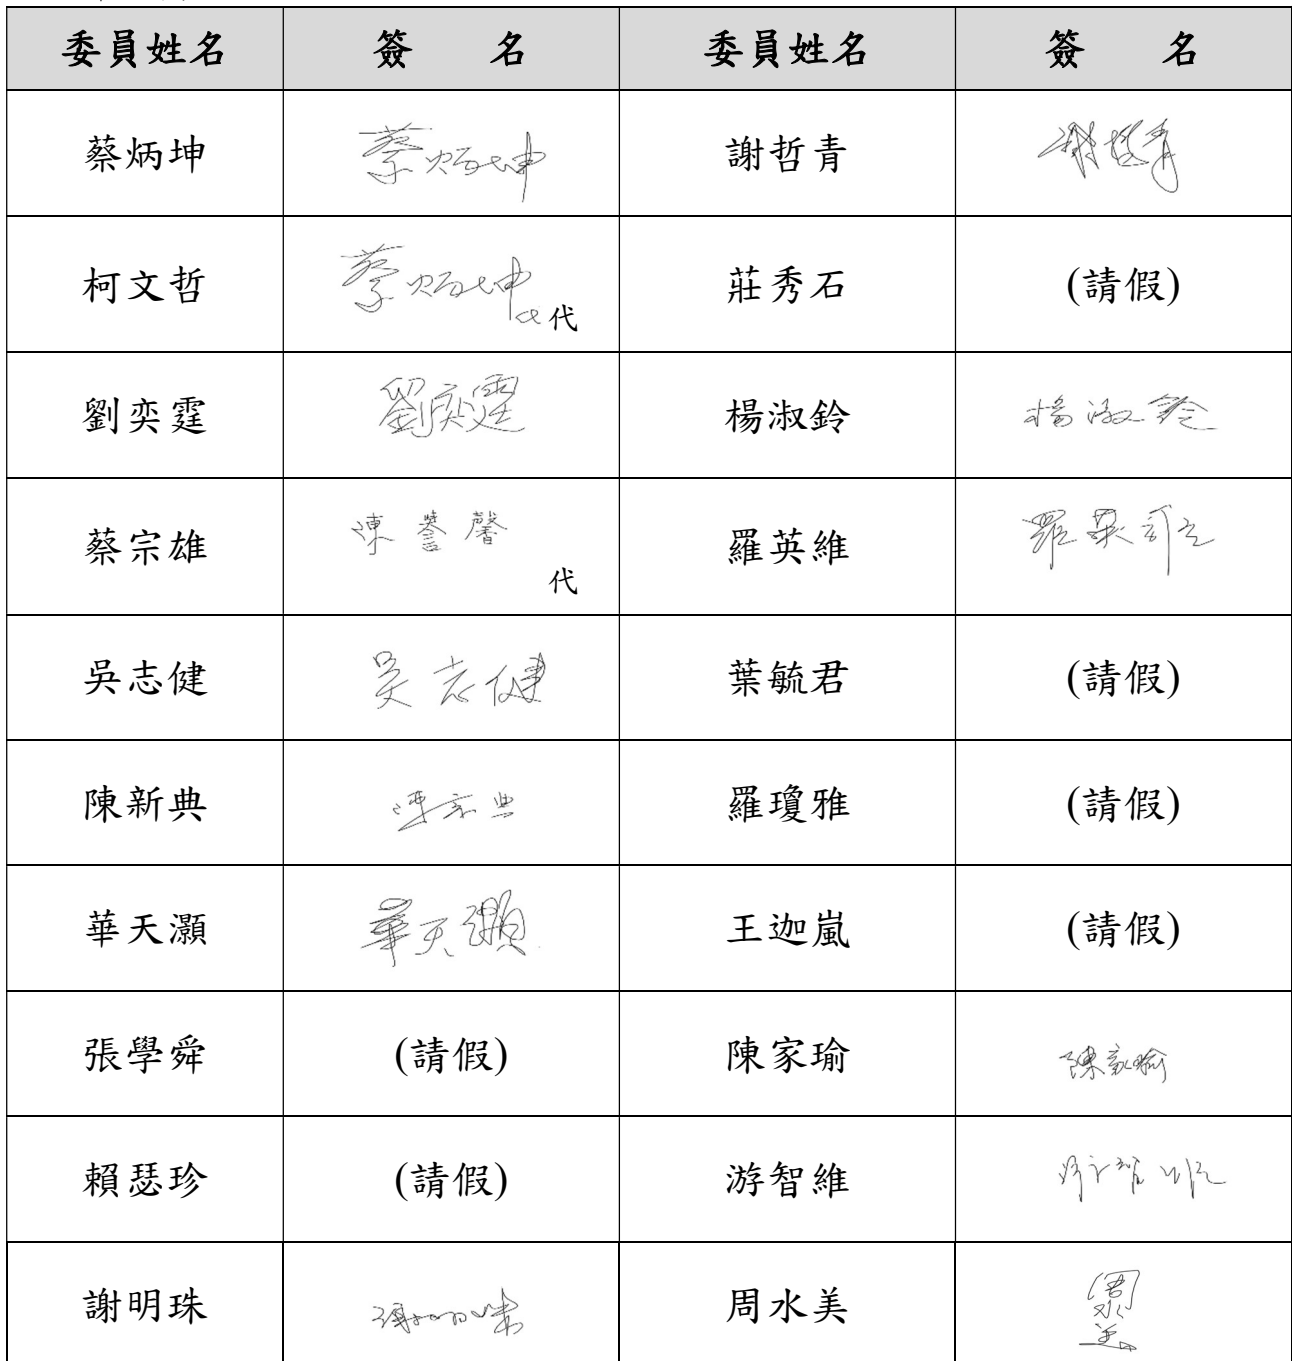 委員姓名 簽名 委員姓名 簽名
蔡炳坤 蔡炳坤 謝哲青 謝哲青
柯文哲 蔡炳坤代 莊秀石 (請假)
劉奕霆 劉奕霆 楊淑鈴 楊淑鈴
蔡宗雄 陳譽馨代 羅英維 羅英維
吳志健 吳志健 葉毓君 (請假)
陳新典 陳新典 羅瓊雅 (請假)
華天灝 華天灝 王迦嵐 (請假)
張學舜 (請假) 陳家瑜 陳家瑜
賴瑟珍 (請假) 游智維 游智維
謝明珠 謝明珠 周水美 周水美